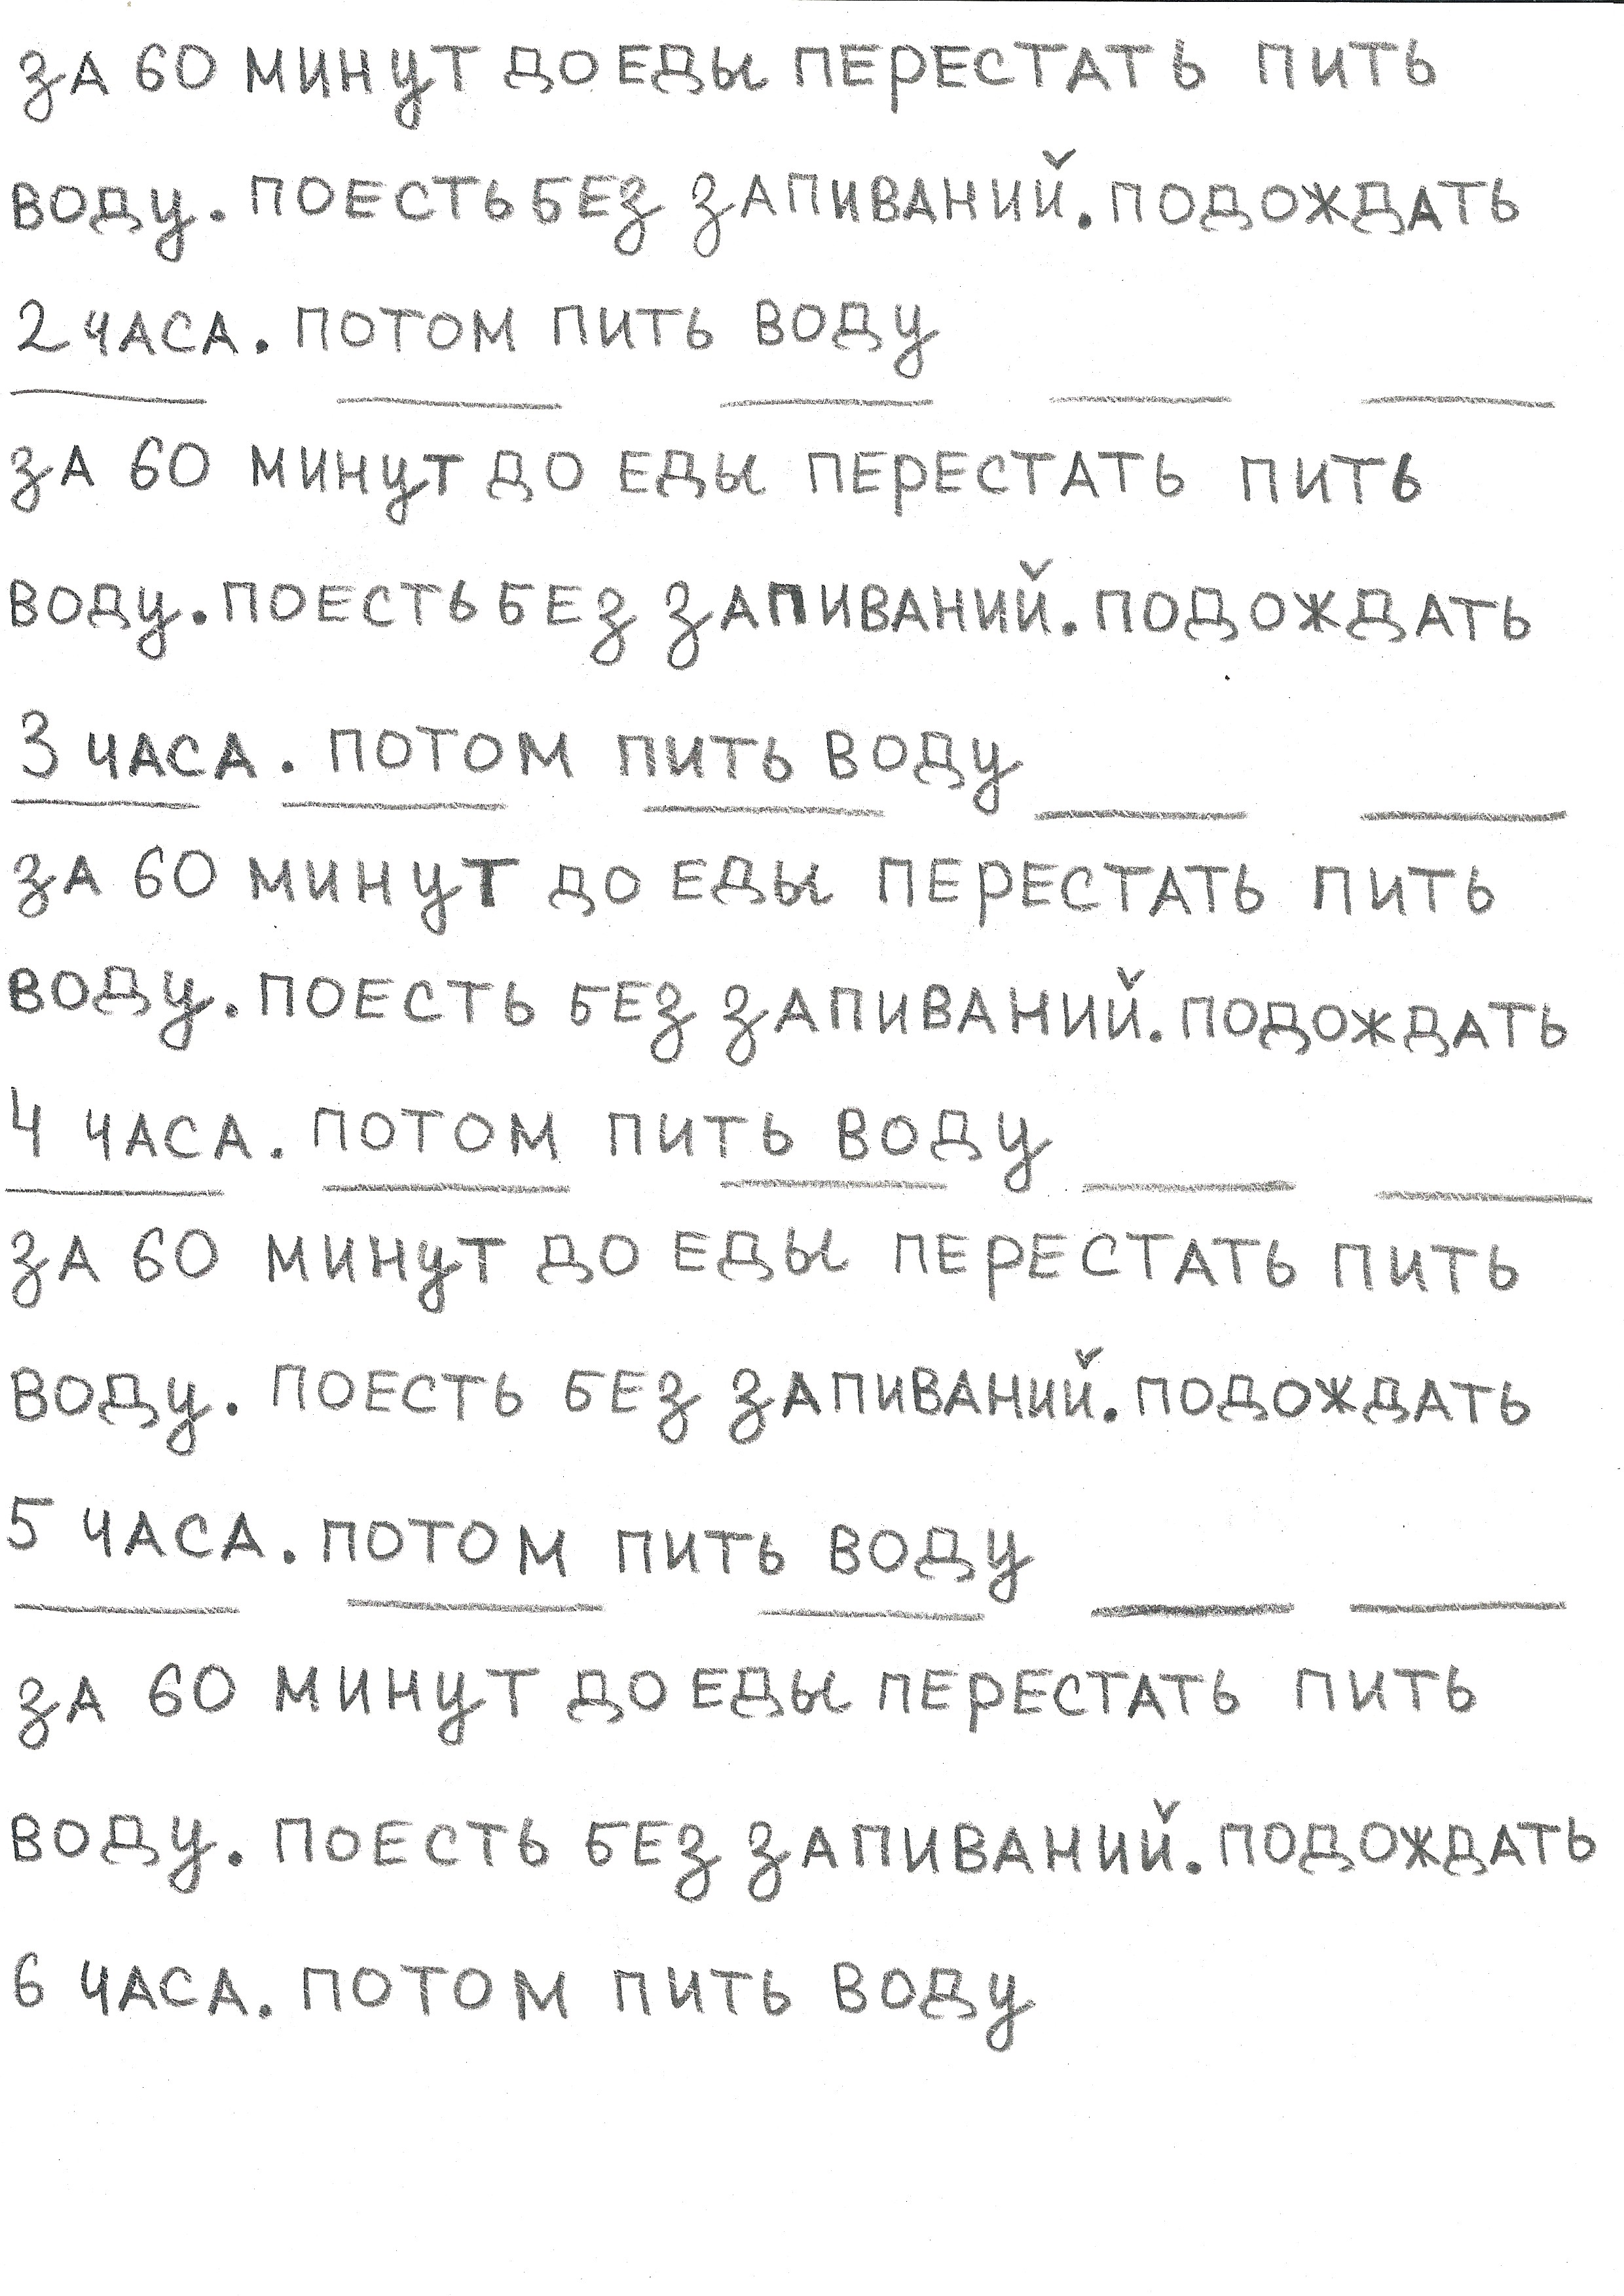 ЗА 60 МИНУТ ДО ЕДЫ ПЕРЕСТАТЬ ПИТЬ
ВОДУ. ПОЕСТЬ БЕЗ ЗАПИВАНИЙ. ПОДОЖДАТЬ
2 ЧАСА. ПОТОМ ПИТЬ ВОДУ
ЗА 60 МИНУТ ДО ЕДЫ ПЕРЕСТАТЬ ПИТЬ
ВОДУ. ПОЕСТЬ БЕЗ ЗАПИВАНИЙ. ПОДОЖДАТЬ
3 ЧАСА. ПОТОМ ПИТЬ ВОДУ
ЗА 60 МИНУТ ДО ЕДЫ ПЕРЕСТАТЬ ПИТЬ
ВОДУ. ПОЕСТЬ БЕЗ ЗАПИВАНИЙ. ПОДОЖДАТЬ
4 ЧАСА. ПОТОМ ПИТЬ ВОДУ
ЗА 60 МИНУТ ДО ЕДЫ ПЕРЕСТАТЬ ПИТЬ
ВОДУ. ПОЕСТЬ БЕЗ ЗАПИВАНИЙ. ПОДОЖДАТЬ
5 ЧАСА. ПОТОМ ПИТЬ ВОДУ
ЗА 60 МИНУТ ДО ЕДЫ ПЕРЕСТАТЬ ПИТЬ
ВОДУ. ПОЕСТЬ БЕЗ ЗАПИВАНИЙ. ПОДОЖДАТЬ
6 ЧАСА. ПОТОМ ПИТЬ ВОДУ